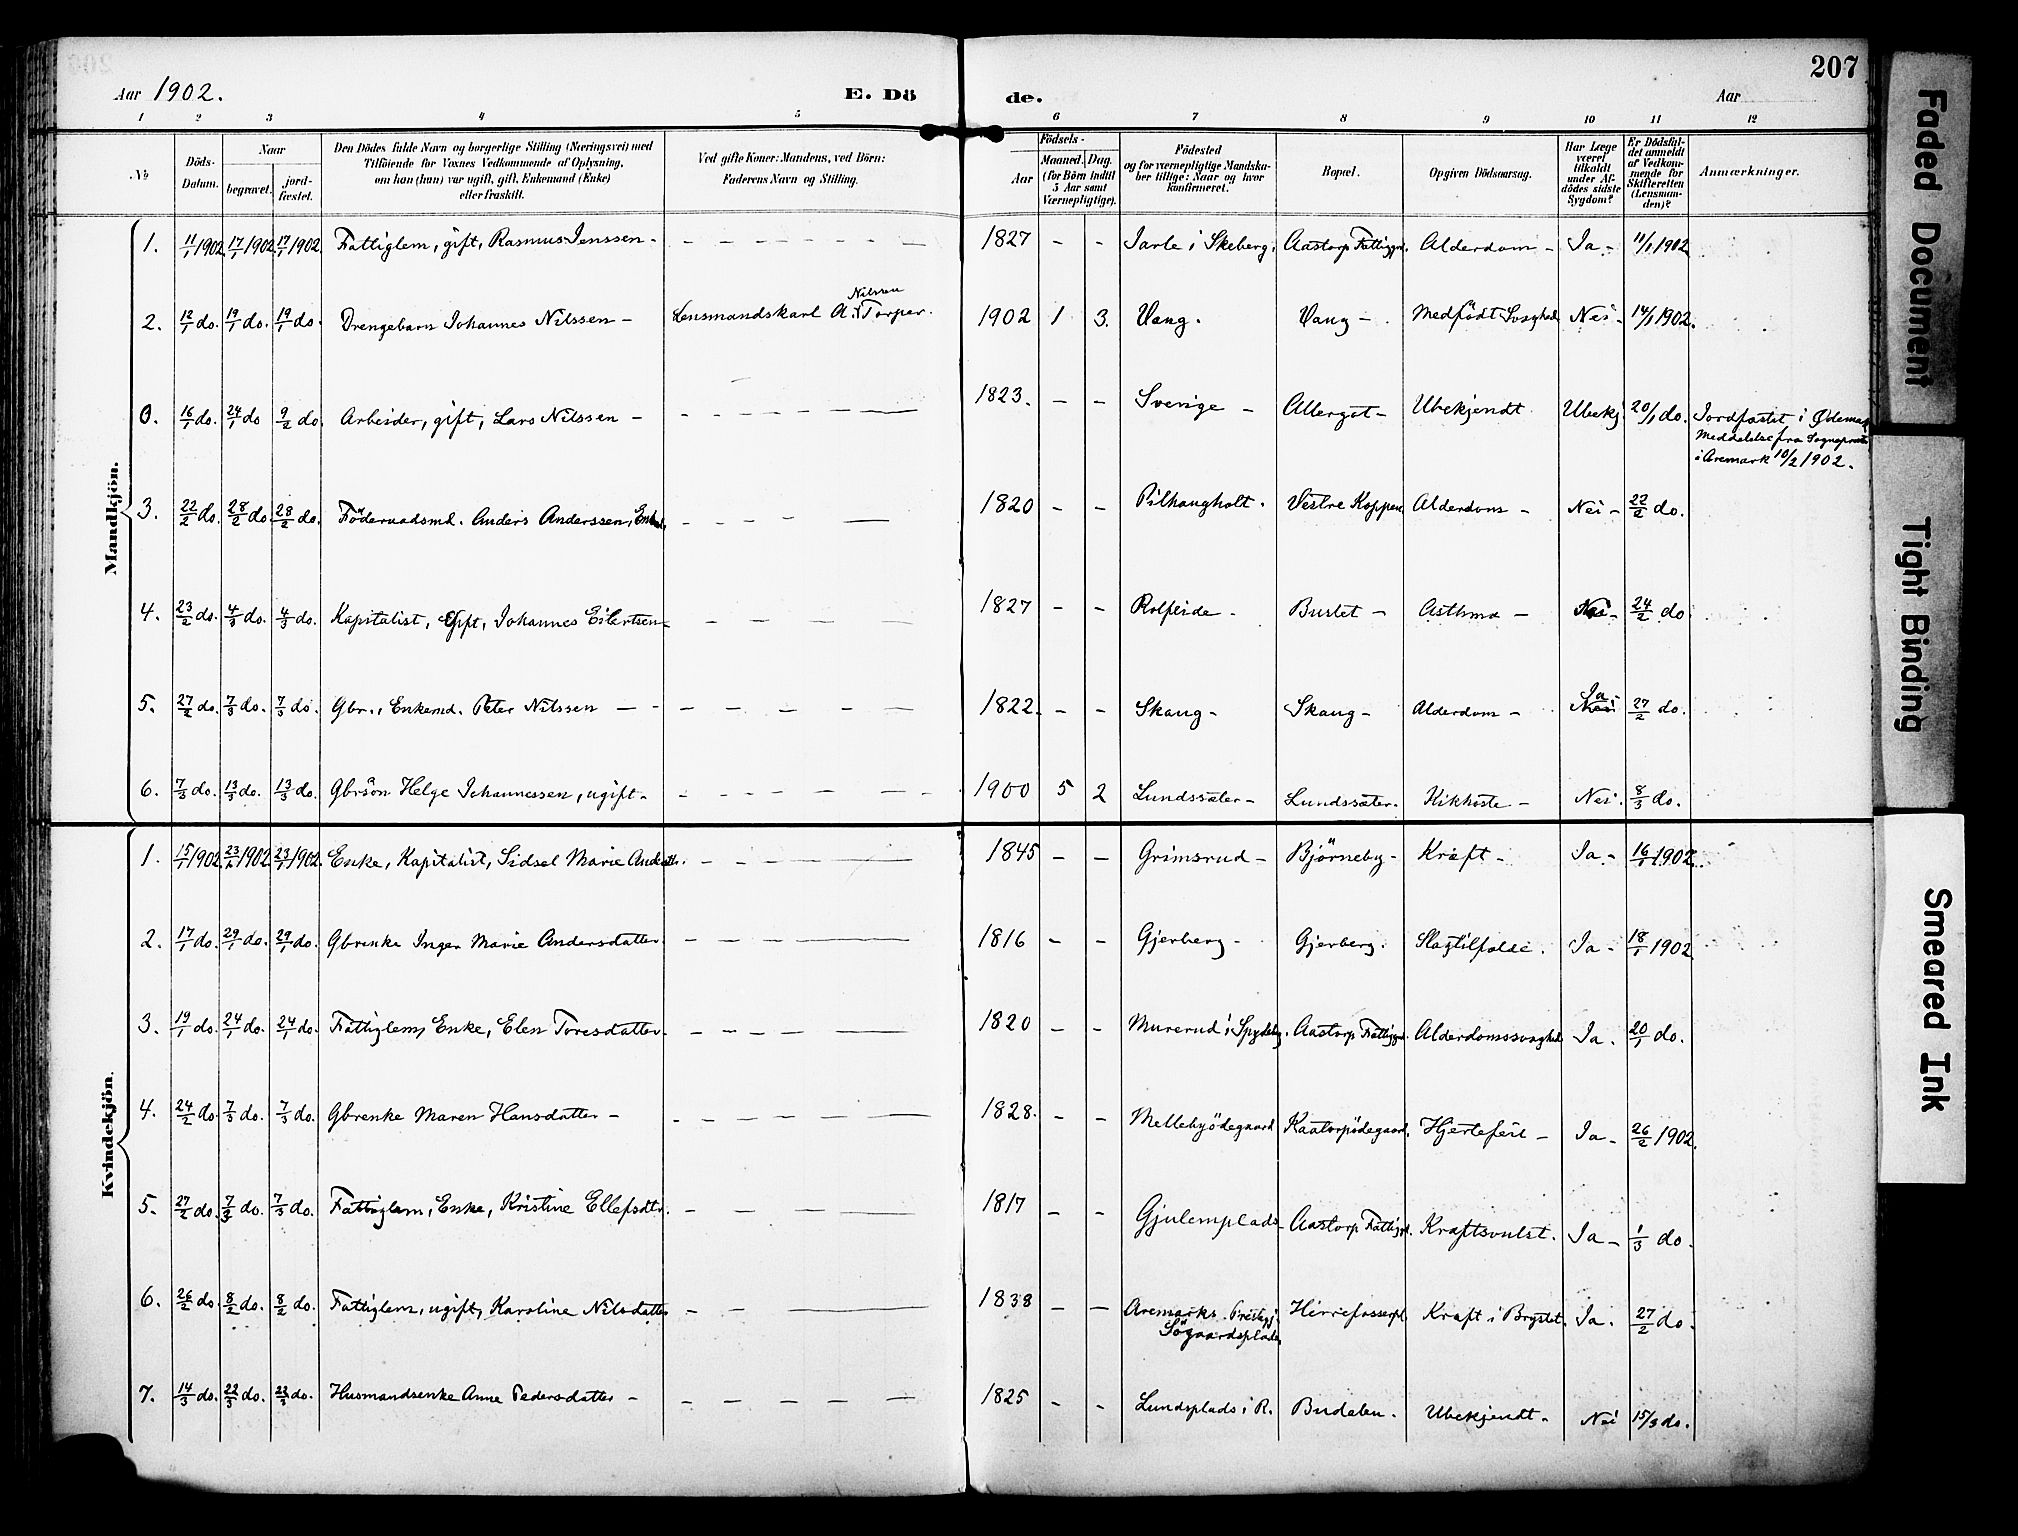 207
Aar 1902. E. Dö de. Aar
1 2 3 4 5 6 7 8 9 10 11 12
№ Döds-Datum. Naar begravet. jord-fæstet. Den Dödes fulde Navn og borgerlige Stilling (Næringsvei) med Tilföiende for Voxnes Vedkommende af Oplysning, om han (hun) var ugift, gift, Enkemand (Enke) eller fraskilt. Ved gifte Koner: Mandens, ved Börn: Faderens Navn og Stilling. Födsels- Aar Maaned. Dag. (for Börn indtil 5 Aar samt Værnepligtige). Födested og for værnepligtige Mandskaber tillige: Naar og hvor konfirmeret. Bopæl. Opgiven Dödsaarsag. Har Læge været tilkaldt under Afdödes sidste Sygdom? Er Dödsfaldet anmeldt af Vedkommende for Skifteretten (Lensmanden)? Anmærkninger.
Mandkjön.
1. 11/1 1902. 17/1 1902 17/1 1902 Fattiglem, gift, Rasmus Jenssen - - - - - - - - 1827 - - Jarle i Skeberg. Aastorp Fattiggrd. Alderdom - Ja - 11/1 1902
2. 12/1 do. 19/1 do. 19/1 do. Drengebarn Johannes Nilssen - Lensmandskarl A. Nilssen Torper. 1902 1 3. Vang. Vang - Medfödt Svaghed Nei - 14/1 1902.
0. 16/1 do. 24/1 do 9/2 do. Arbeider, gift, Lars Nilssen - - - - - - - 1823. - - Sverige - Allergot - Ubekjendt Ubekj 20/1 do. Jordfæstet i Ødemark
Meddelelse fra Sogneprest
i Aremark 10/2 1902.
3. 22/2 do. 28/2 do 28/2 do. Föderaadsmd. Anders Anderssen, Enkm. - - - - 1820 - - Pilhaugholt. Vestre Koppen Alderdom - Nei - 22/2 do.
4. 23/2 do. 4/3 do. 4/3 do. Kapitalist, Gift, Johannes Eilertsen - - - - 1827 - - Rolfside - Bustet - Asthma - Nei - 24/2 do
5. 27/2 do. 7/3 do. 7/3 do. Gbr., Enkemd. Peter Nilssen - - - - - - - 1822. - - Skaug - Skaug - Alderdom - Nei Ja 27/2 do.
6. 7/3 do. 13/3 do. 13/3 do. Gbrsön Helge Johannessen, ugift - - - - - - - 1900 5 2 Lundssæter - Lundssæter. Kikhoste - Nei. 8/3 do.
Kvindekjön.
1. 15/1 1902 23/1 1902 23/1 1902 Enke, Kapitalist, Sidsel Marie Andersdtr. - - - - - 1845 - - Grimsrud - Bjørneby - Kræft - Ja - 16/1 1902.
2. 17/1 do. 29/1 do. 29/1 do. Gbrenke Inger Marie Andersdatter - - - - - 1816 - - Gjerberg - Gjerberg. Slagtilfælde. Ja - 18/1 1902
3. 19/1 do. 24/1 do. 24/1 do. Fattiglem, Enke, Elen Toresdatter - - - - - 1820 - - Murerud i Spydeberg. Aastorp Fattiggrd. Alderdomssvaghed Ja. 20/1 do.
4. 24/2 do. 7/3 do. 7/3 do. Gbrenke Maren Hansdatter - - - - - - 1828. - - Mellebyödegaard Kaatorpödegaard. Hjertefeil - Ja - 26/2 1902.
5. 27/2 do. 7/3 do. 7/3 do. Fattiglem, Enke, Kristine Ellefsdtr. - - - - 1817 - - Gjulemplads - Aastorp Fattiggrd. Kræftsvulst. Ja - 1/3 do.
6. 26/2 do. 8/2 do. 8/2 do. Fattiglem, ugift, Karoline Nilsdatter - - - - 1838 - - Aremarks Prestegj. Søgaardsplads Kræft i Brystet. Ja. 27/2 do.
7. 14/3 do. 22/3 do. 22/3 do. Husmandsenke Anne Pedersdatter - - - - - - 1825 - - Lundsplads i R. Budalen. Ubekjendt. Nei 15/3 do.
Faded Document
Tight Binding
Smeared Ink